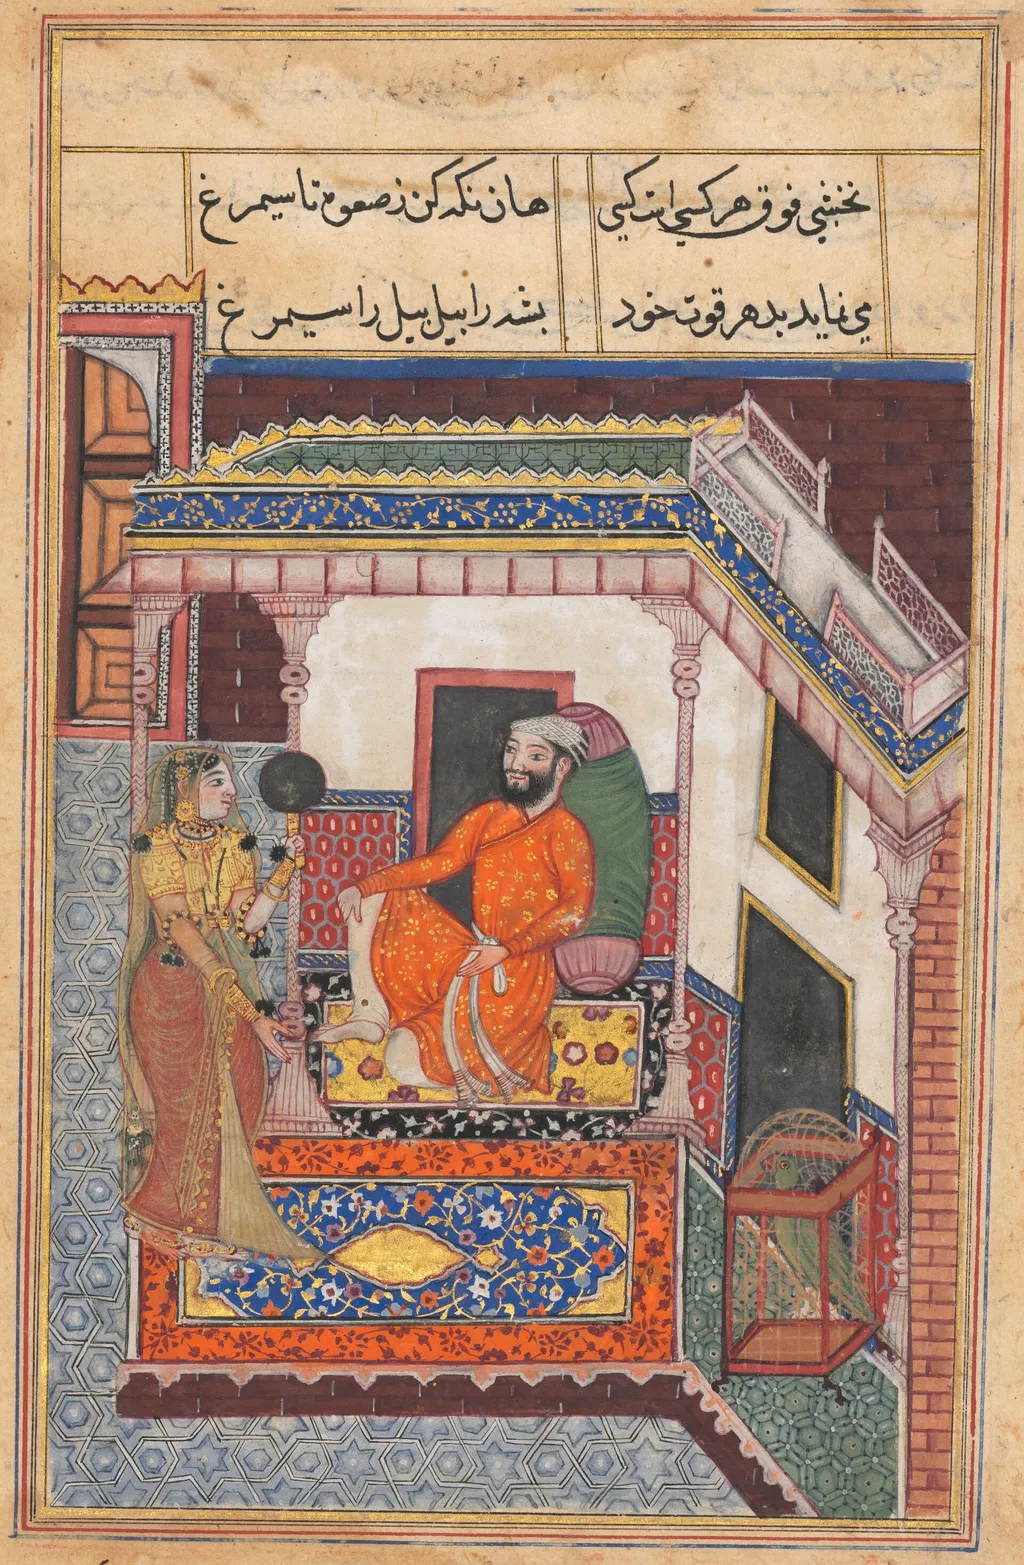 نخشبي فوق هر کسي است کسي هان نکه کن ز صعوه تا سیمرغ
مي نماید بدهر قوت خود بشه را بیل بیل را سیمرغ